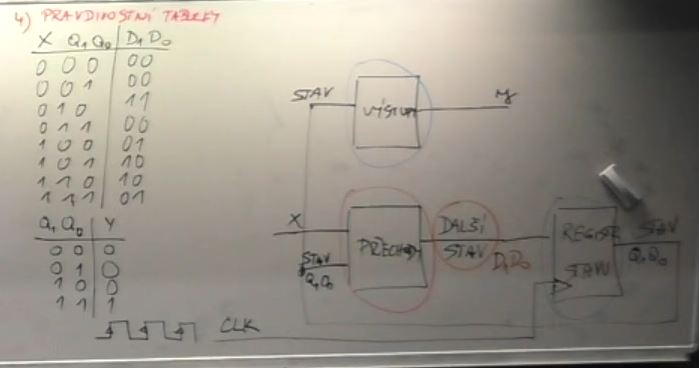 4) PRAVDIVOSTNÍ TABULKY
X Q₁ Q₀ D₁ D₀
0 0 0 00
0 0 1 00
0 1 0 11
0 1 1 00
1 0 0 01
1 0 1 10
1 1 0 10
1 1 1 01
Q₁ Q₀ Y
0 0 0
0 1 0
1 0 0
1 1 1
CLK
STAV
VÝSTUP
y
X
STAV
Q₁Q₀
PŘECHODY
DALŠÍ
STAV
D₁D₀
REGISTR
STAVU
STAV
Q₁Q₀